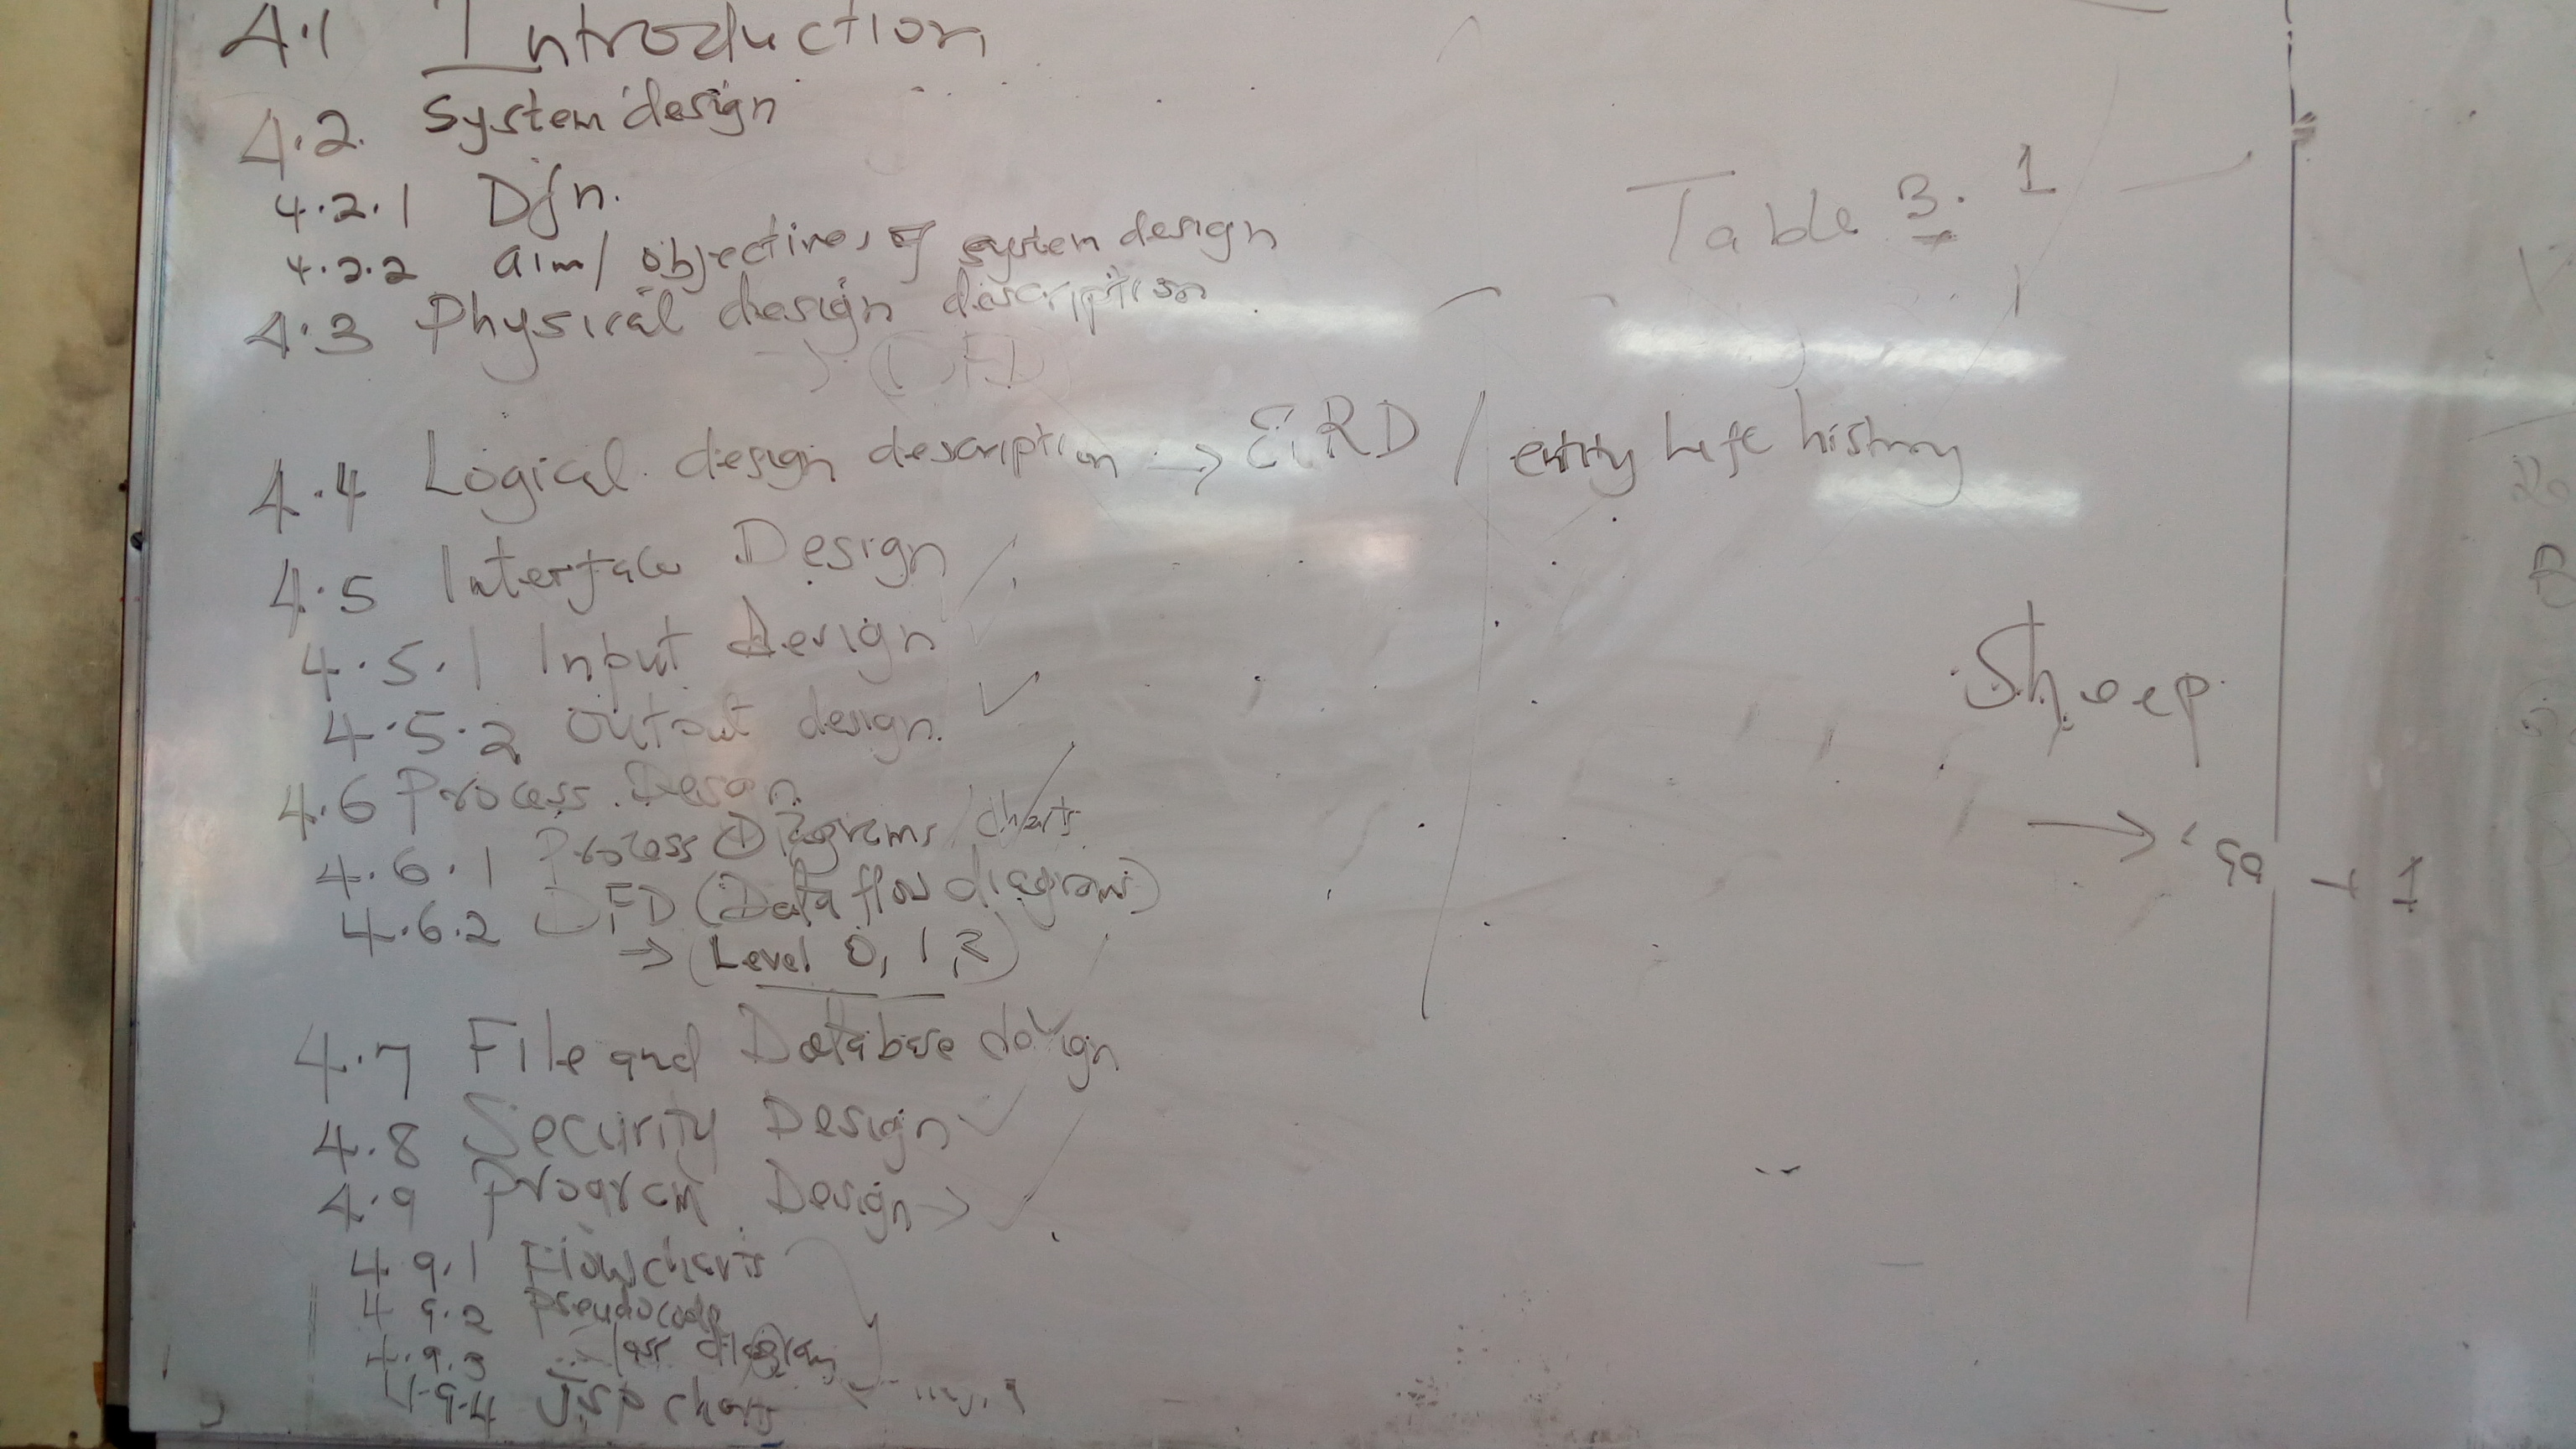 4.1 Introduction
4.2. System design
4.2.1 Dfn.
4.2.2 aim/ objectives of system design
4.3 Physical design description
→ (DFD)
4.4 Logical design description → E.RD / entity life history
4.5 Interface Design
4.5.1 Input design
4.5.2 Output design.
4.6 Process Design
4.6.1 Process Diagrams/charts
4.6.2 DFD (Data flow diagrams)
→ (Level 0, 1,2)
4.7 File and Database design
4.8 Security Design
4.9 Program Design →
4.9.1 Flowcharts
4.9.2 Pseudocode
4.9.3 class diagram
4.9.4 JSP charts
Table 3.1
Sheep
→